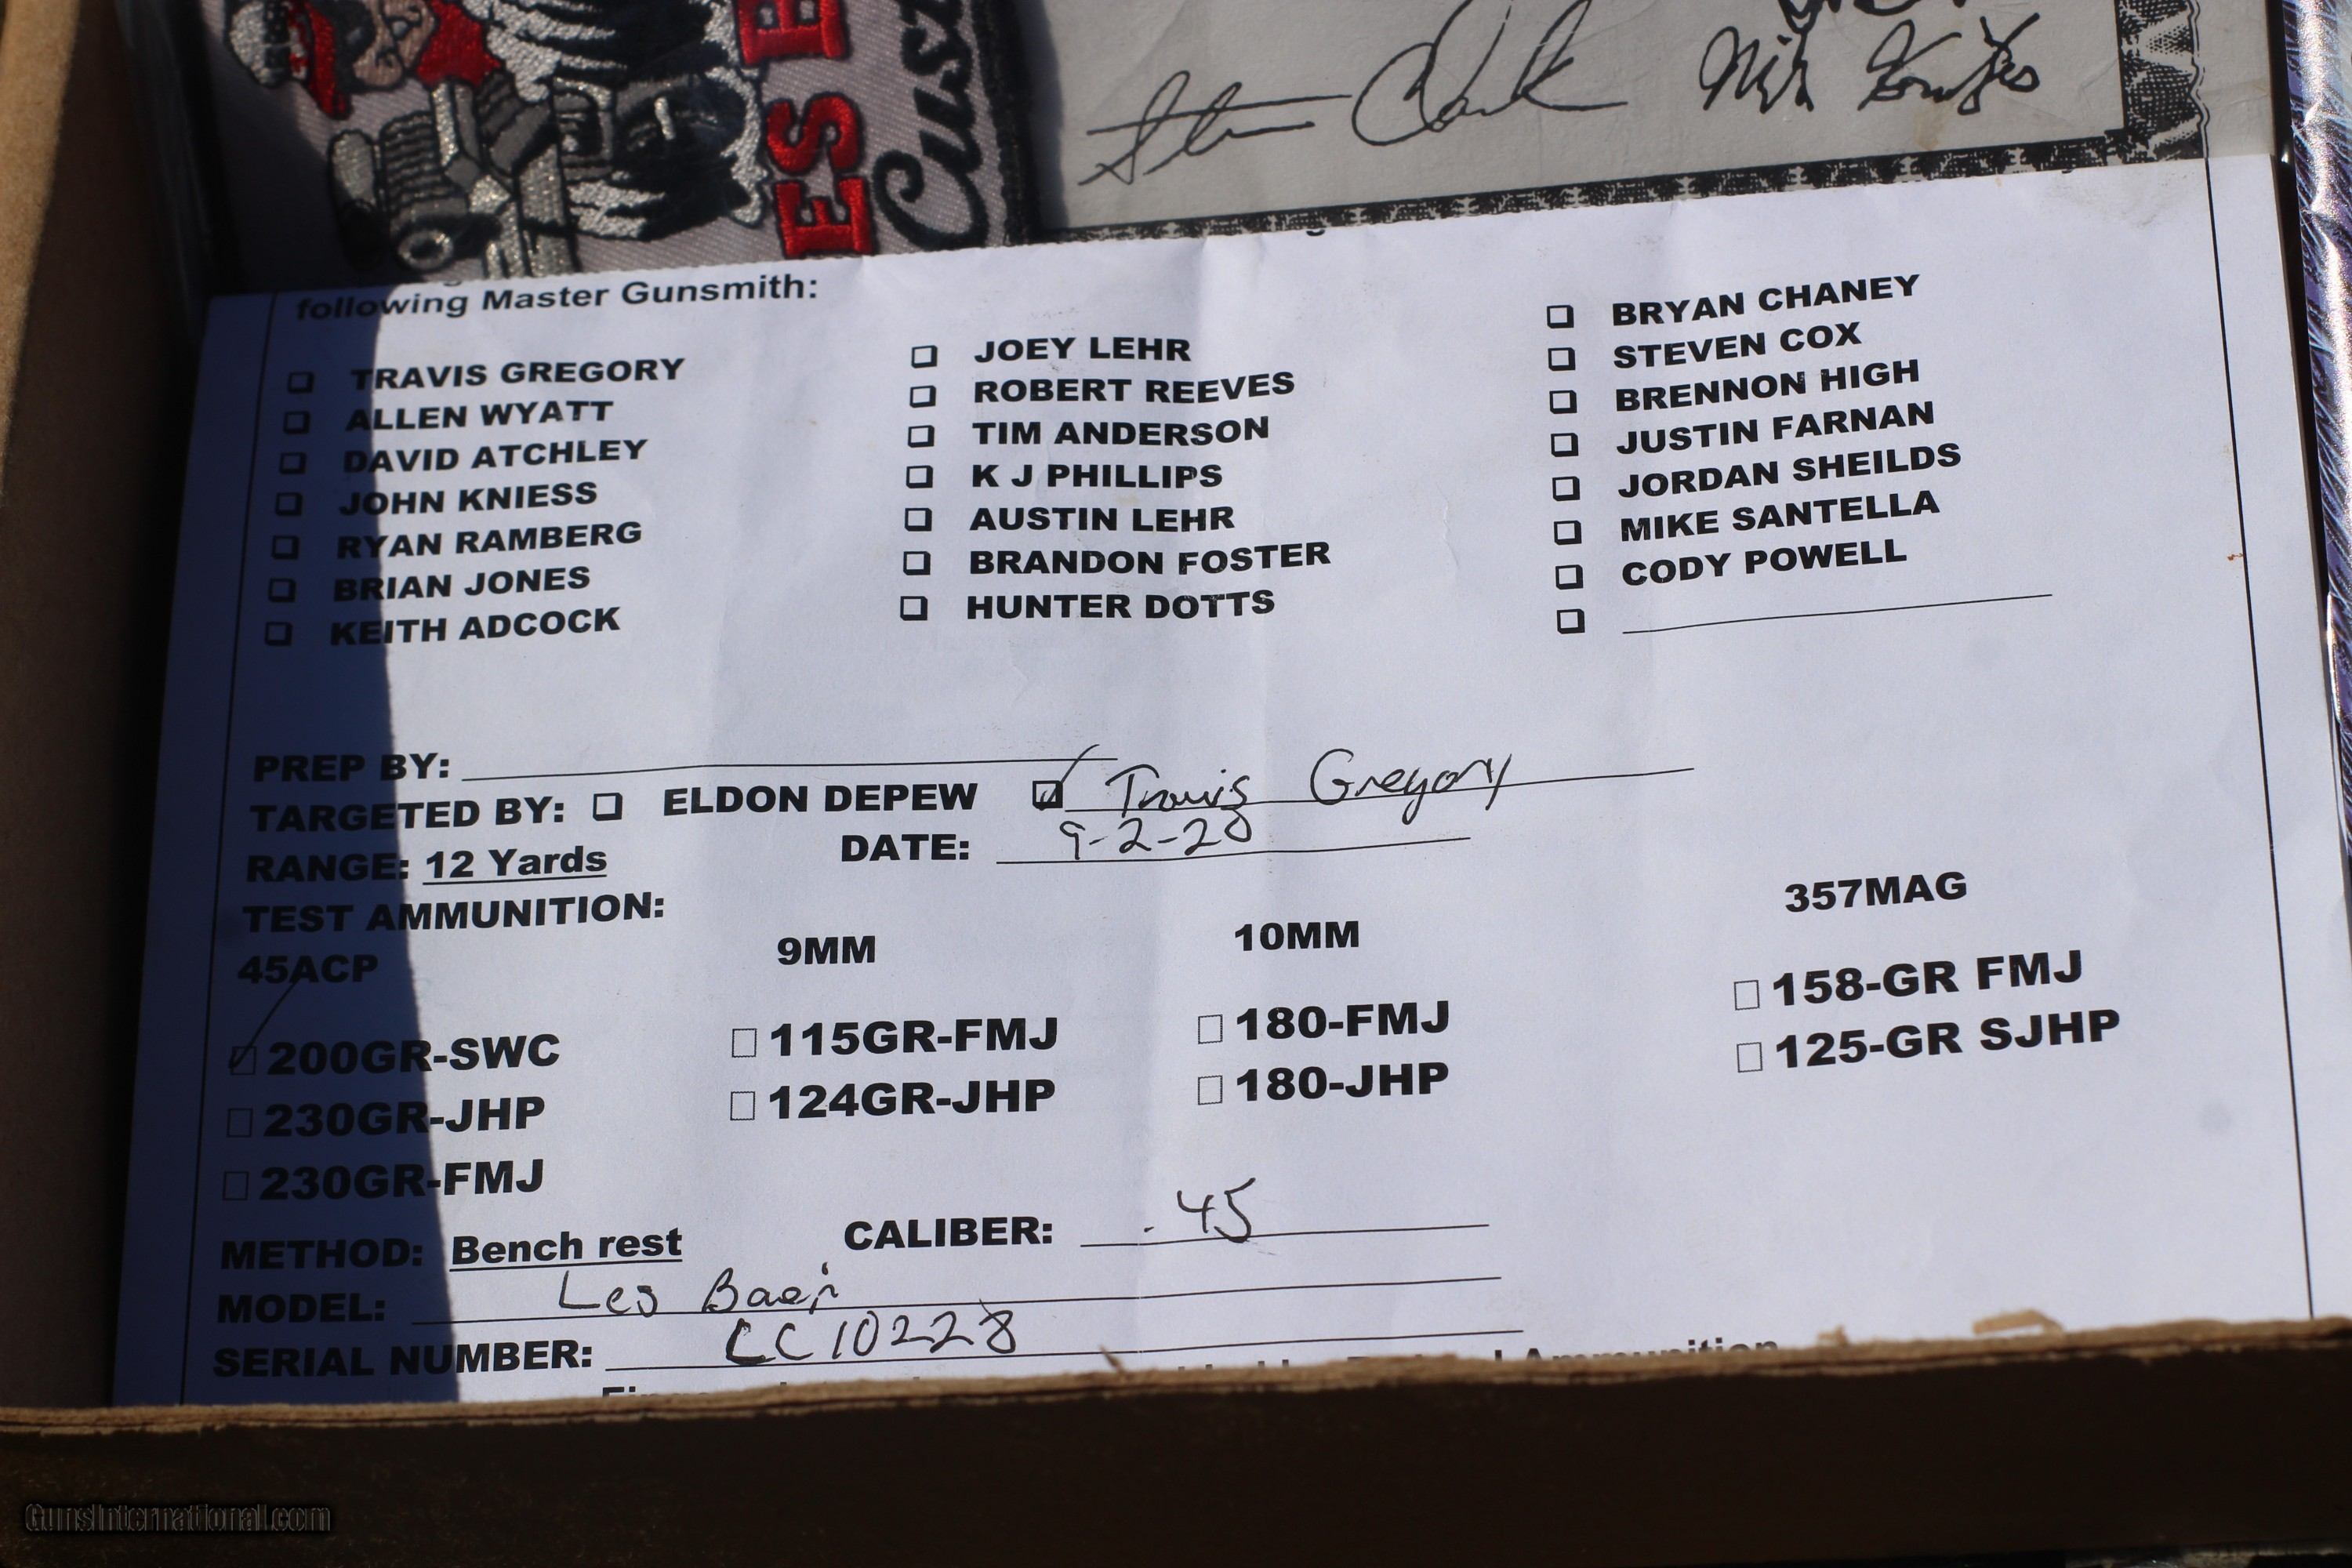 ES B
Cus
following Master Gunsmith:
☐ TRAVIS GREGORY
☐ ALLEN WYATT
☐ DAVID ATCHLEY
☐ JOHN KNIESS
☐ RYAN RAMBERG
☐ BRIAN JONES
☐ KEITH ADCOCK
☐ JOEY LEHR
☐ ROBERT REEVES
☐ TIM ANDERSON
☐ K J PHILLIPS
☐ AUSTIN LEHR
☐ BRANDON FOSTER
☐ HUNTER DOTTS
☐ BRYAN CHANEY
☐ STEVEN COX
☐ BRENNON HIGH
☐ JUSTIN FARNAN
☐ JORDAN SHEILDS
☐ MIKE SANTELLA
☐ CODY POWELL
☐
PREP BY:
TARGETED BY: ☐ ELDON DEPEW ☑ Travis Gregory
RANGE: 12 Yards DATE: 9-2-20
TEST AMMUNITION:
45ACP 9MM 10MM 357MAG
☑ 200GR-SWC ☐ 115GR-FMJ ☐ 180-FMJ ☐ 158-GR FMJ
☐ 230GR-JHP ☐ 124GR-JHP ☐ 180-JHP ☐ 125-GR SJHP
☐ 230GR-FMJ
METHOD: Bench rest CALIBER: .45
MODEL: Les Baer
SERIAL NUMBER: CC10228
Ammunition
GunsInternational.com